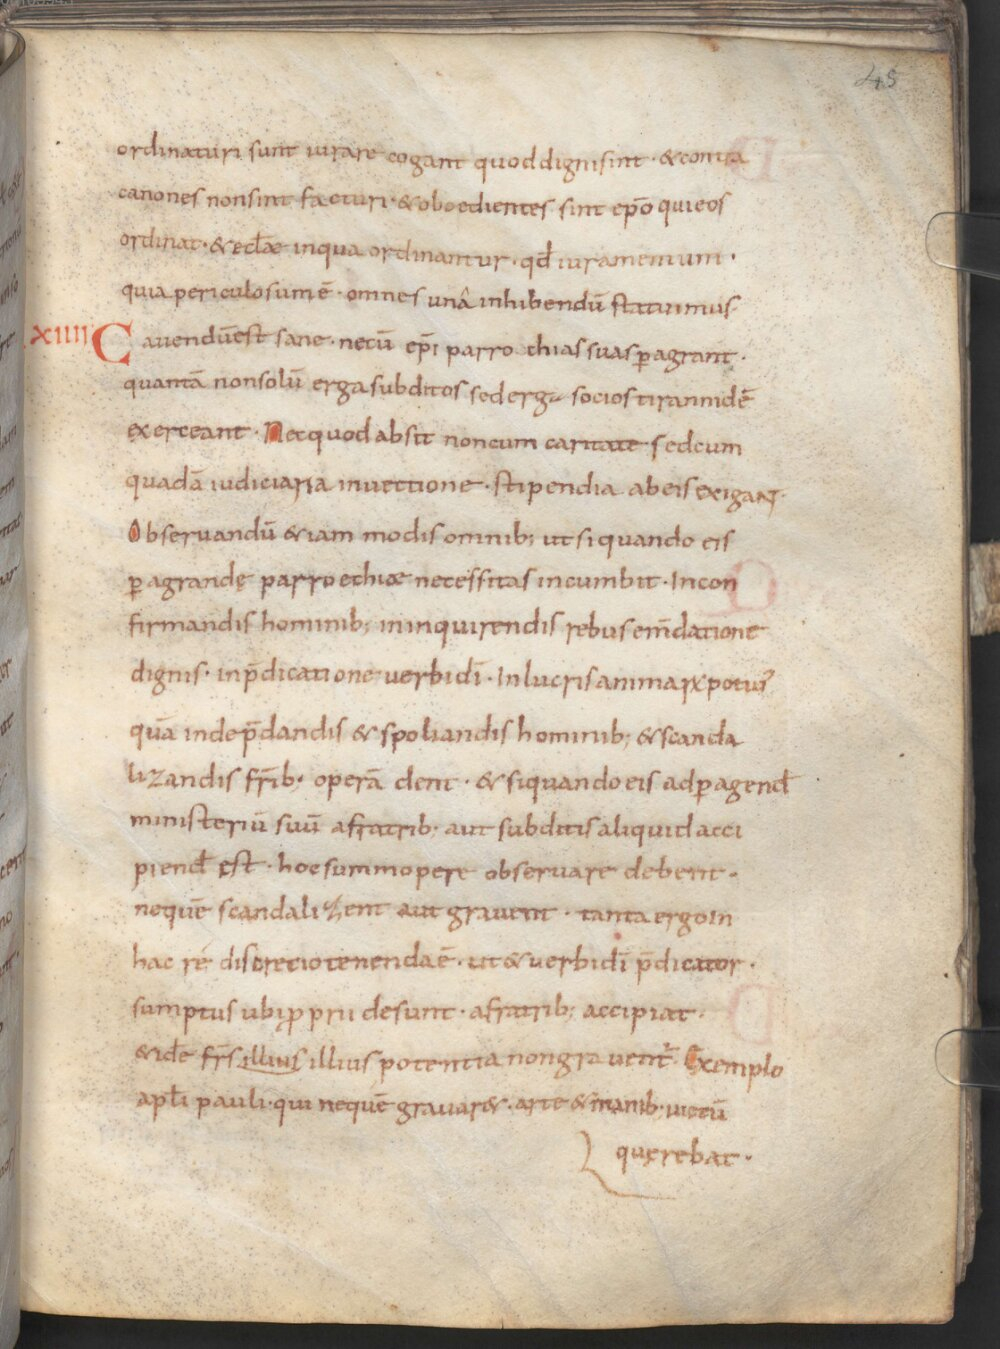 45
ordinaturi sunt iurare cogant quod digni sint · & contra
canones non sint facturi · & oboedientes sint ep̄o qui eos
ordinat · & eccł̄ae in qua ordinantur · qđ iuramentum ·
quia periculosum ē · omnes unā inhibendū statuimus ·
XIIII Cauendū est sane · ne cū ep̄i parrochias suas ꝑagrant ·
quantā non solū erga subditos sed erga socios tirannidē
exerceant · Nec quod absit non cum caritate sed cum
quadā iudiciaria inuectione · stipendia ab eis exigant ·
Obseruandū & iam modis omnib; ut si quando eis
ꝑagrandę parroechiae necessitas incumbit · In con
firmandis hominib; in inquirendis rebus em̄datione
dignis · in p̄dicatione uerbi dī · In lucris animaꝝ potius
quā in dep̄dandis & spoliandis hominib; & scanda
lizandis fr̄ib; operā dent · & si quando eis ad ꝑagend̄
ministeriū suū a fratrib; aut subditis aliquid acci
piend̄ est · hoc summopere obseruare debent ·
ne quē scandalizent aut grauent · tanta ergo In
hac re discretio tenenda ē · ut & uerbi dī p̄dicator ·
sumptus ubi ꝓprii desunt · a fratrib; accipiat ·
& idē fr̄s illius illius potentia non grauent̄ · Exemplo
apłi pauli · qui ne quē grauar& · arte & manib; uictū
quęrebat ·